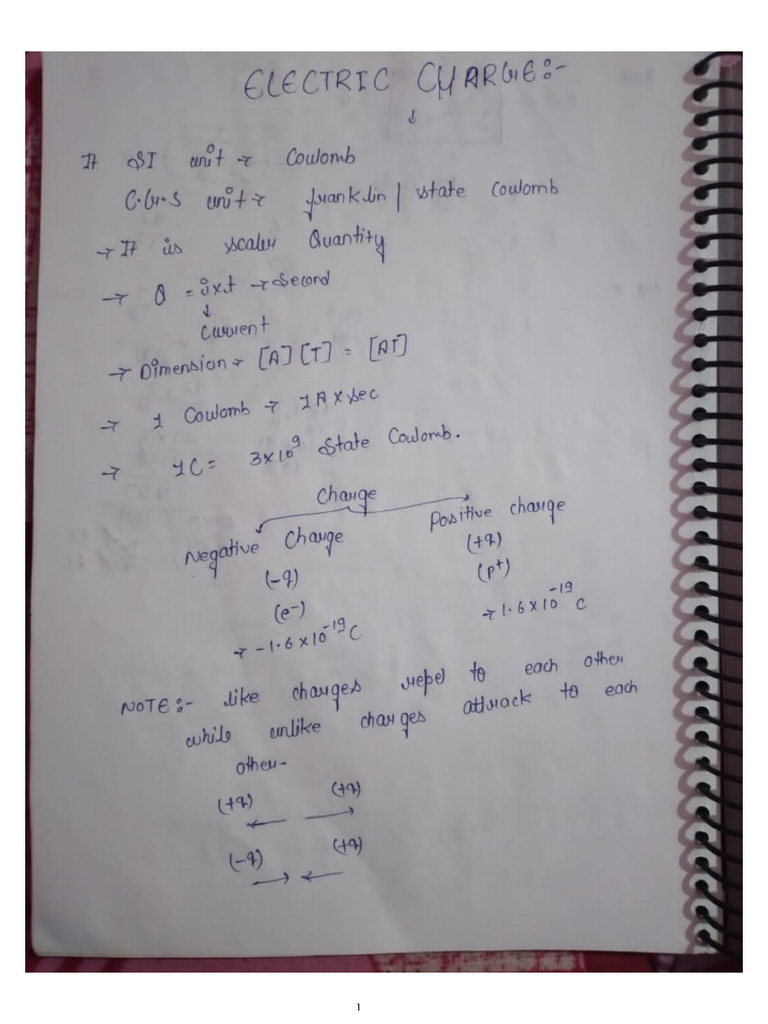 ELECTRIC CHARGE:-
↓
It SI unit → Coulomb
C.G.S unit → franklin / state Coulomb
→ It is scaler Quantity
→ Q = i×t → Second
↓
Current
→ Dimension → [A] [T] = [AT]
→ 1 Coulomb → 1A × sec
→ 1C = 3×10⁹ State Coulomb.
Charge
Negative Charge
(-q)
(e⁻)
→ -1.6×10⁻¹⁹C
Positive charge
(+q)
(p⁺)
→ 1.6×10⁻¹⁹ C
NOTE:- like charges repel to each other
while unlike charges attrack to each
other-
(+q) (+q)
← →
(-q) (+q)
→ ←
1